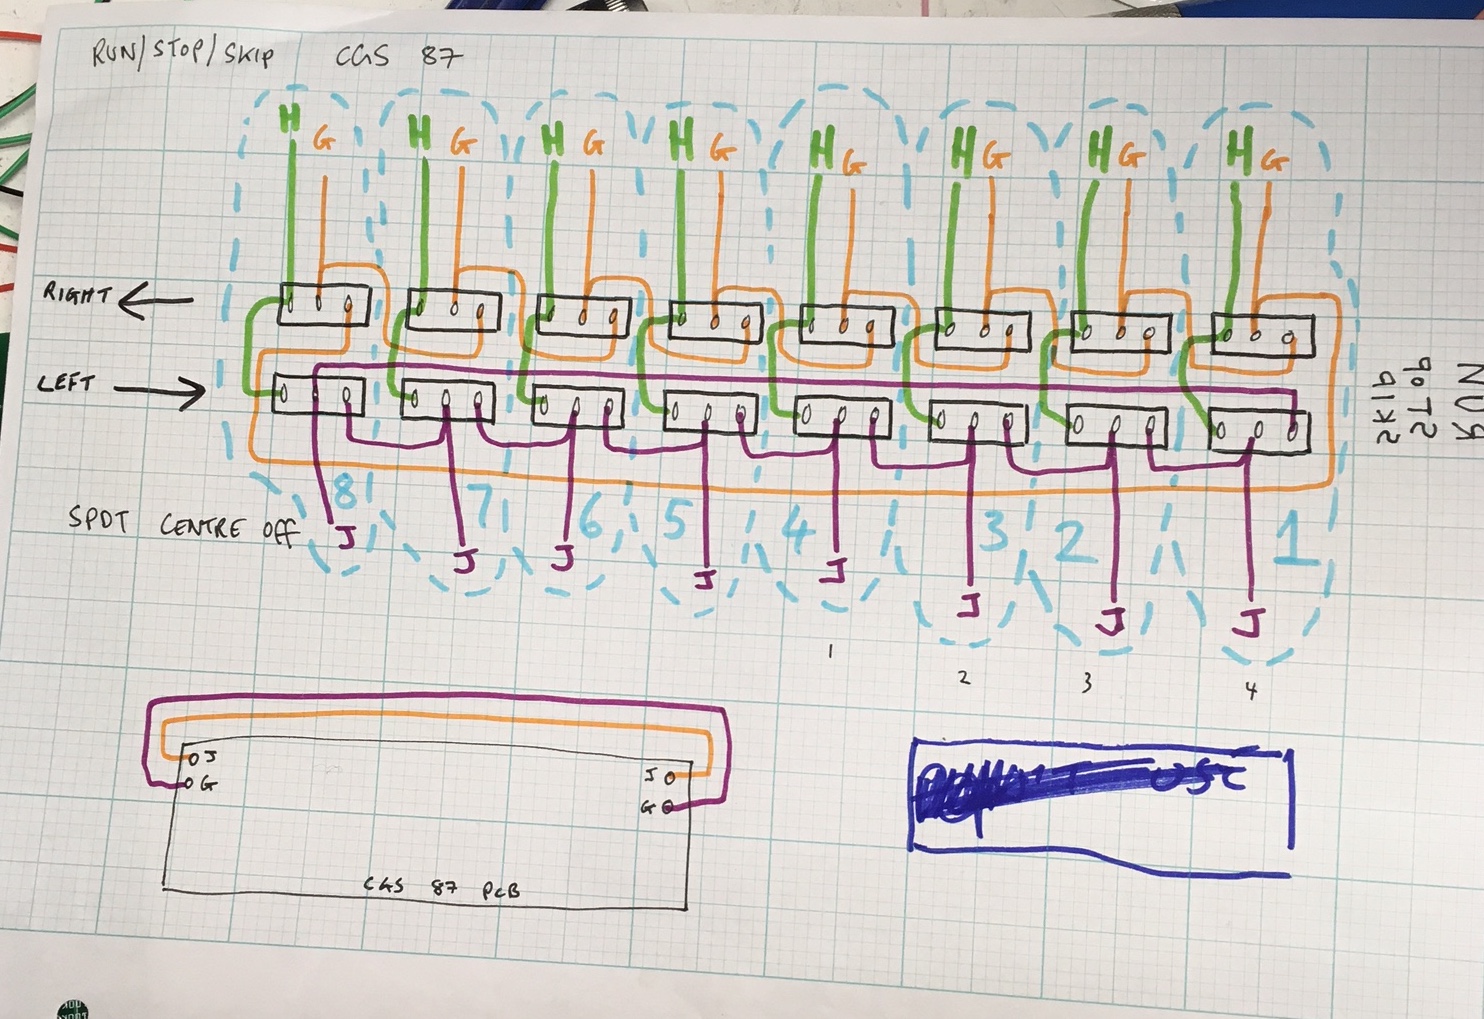 RUN/STOP/SKIP CGS 87
H G H G H G H G H G H G H G H G
RIGHT
LEFT
RUN
STOP
SKIP
SPDT CENTRE OFF
8 7 6 5 4 3 2 1
J J J J J J J J
1 2 3 4
J
G
J
G
CGS 87 PCB
OSC